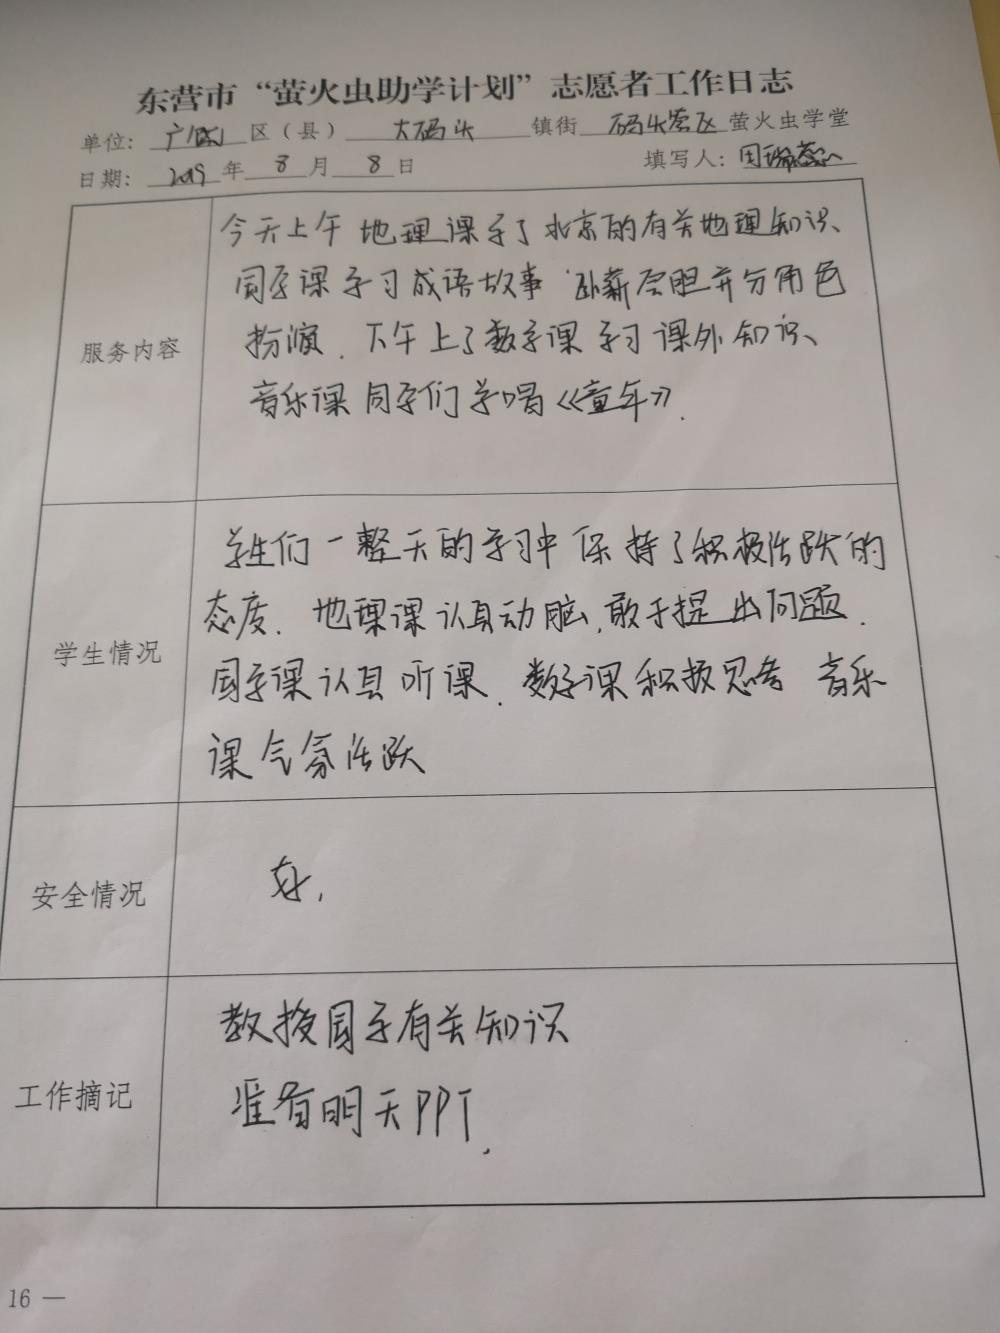 东营市“萤火虫助学计划”志愿者工作日志
单位: 广饶 区（县） 大码头 镇街 码头社区 萤火虫学堂
日期: 2019 年 8 月 8 日 填写人: 田瑞蕊
服务内容
今天上午 地理课学了北京的有关地理知识、
国学课学习成语故事 卧薪尝胆并分角色
扮演. 下午上了数学课 学习课外知识、
音乐课 同学们学唱《童年》.
学生情况
学生们一整天的学习中保持了积极活跃的
态度. 地理课认真动脑,敢于提出问题.
国学课认真听课. 数学课积极思考 音乐
课气氛活跃
安全情况
好.
工作摘记
教授国学有关知识
准备明天PPT.
16 —